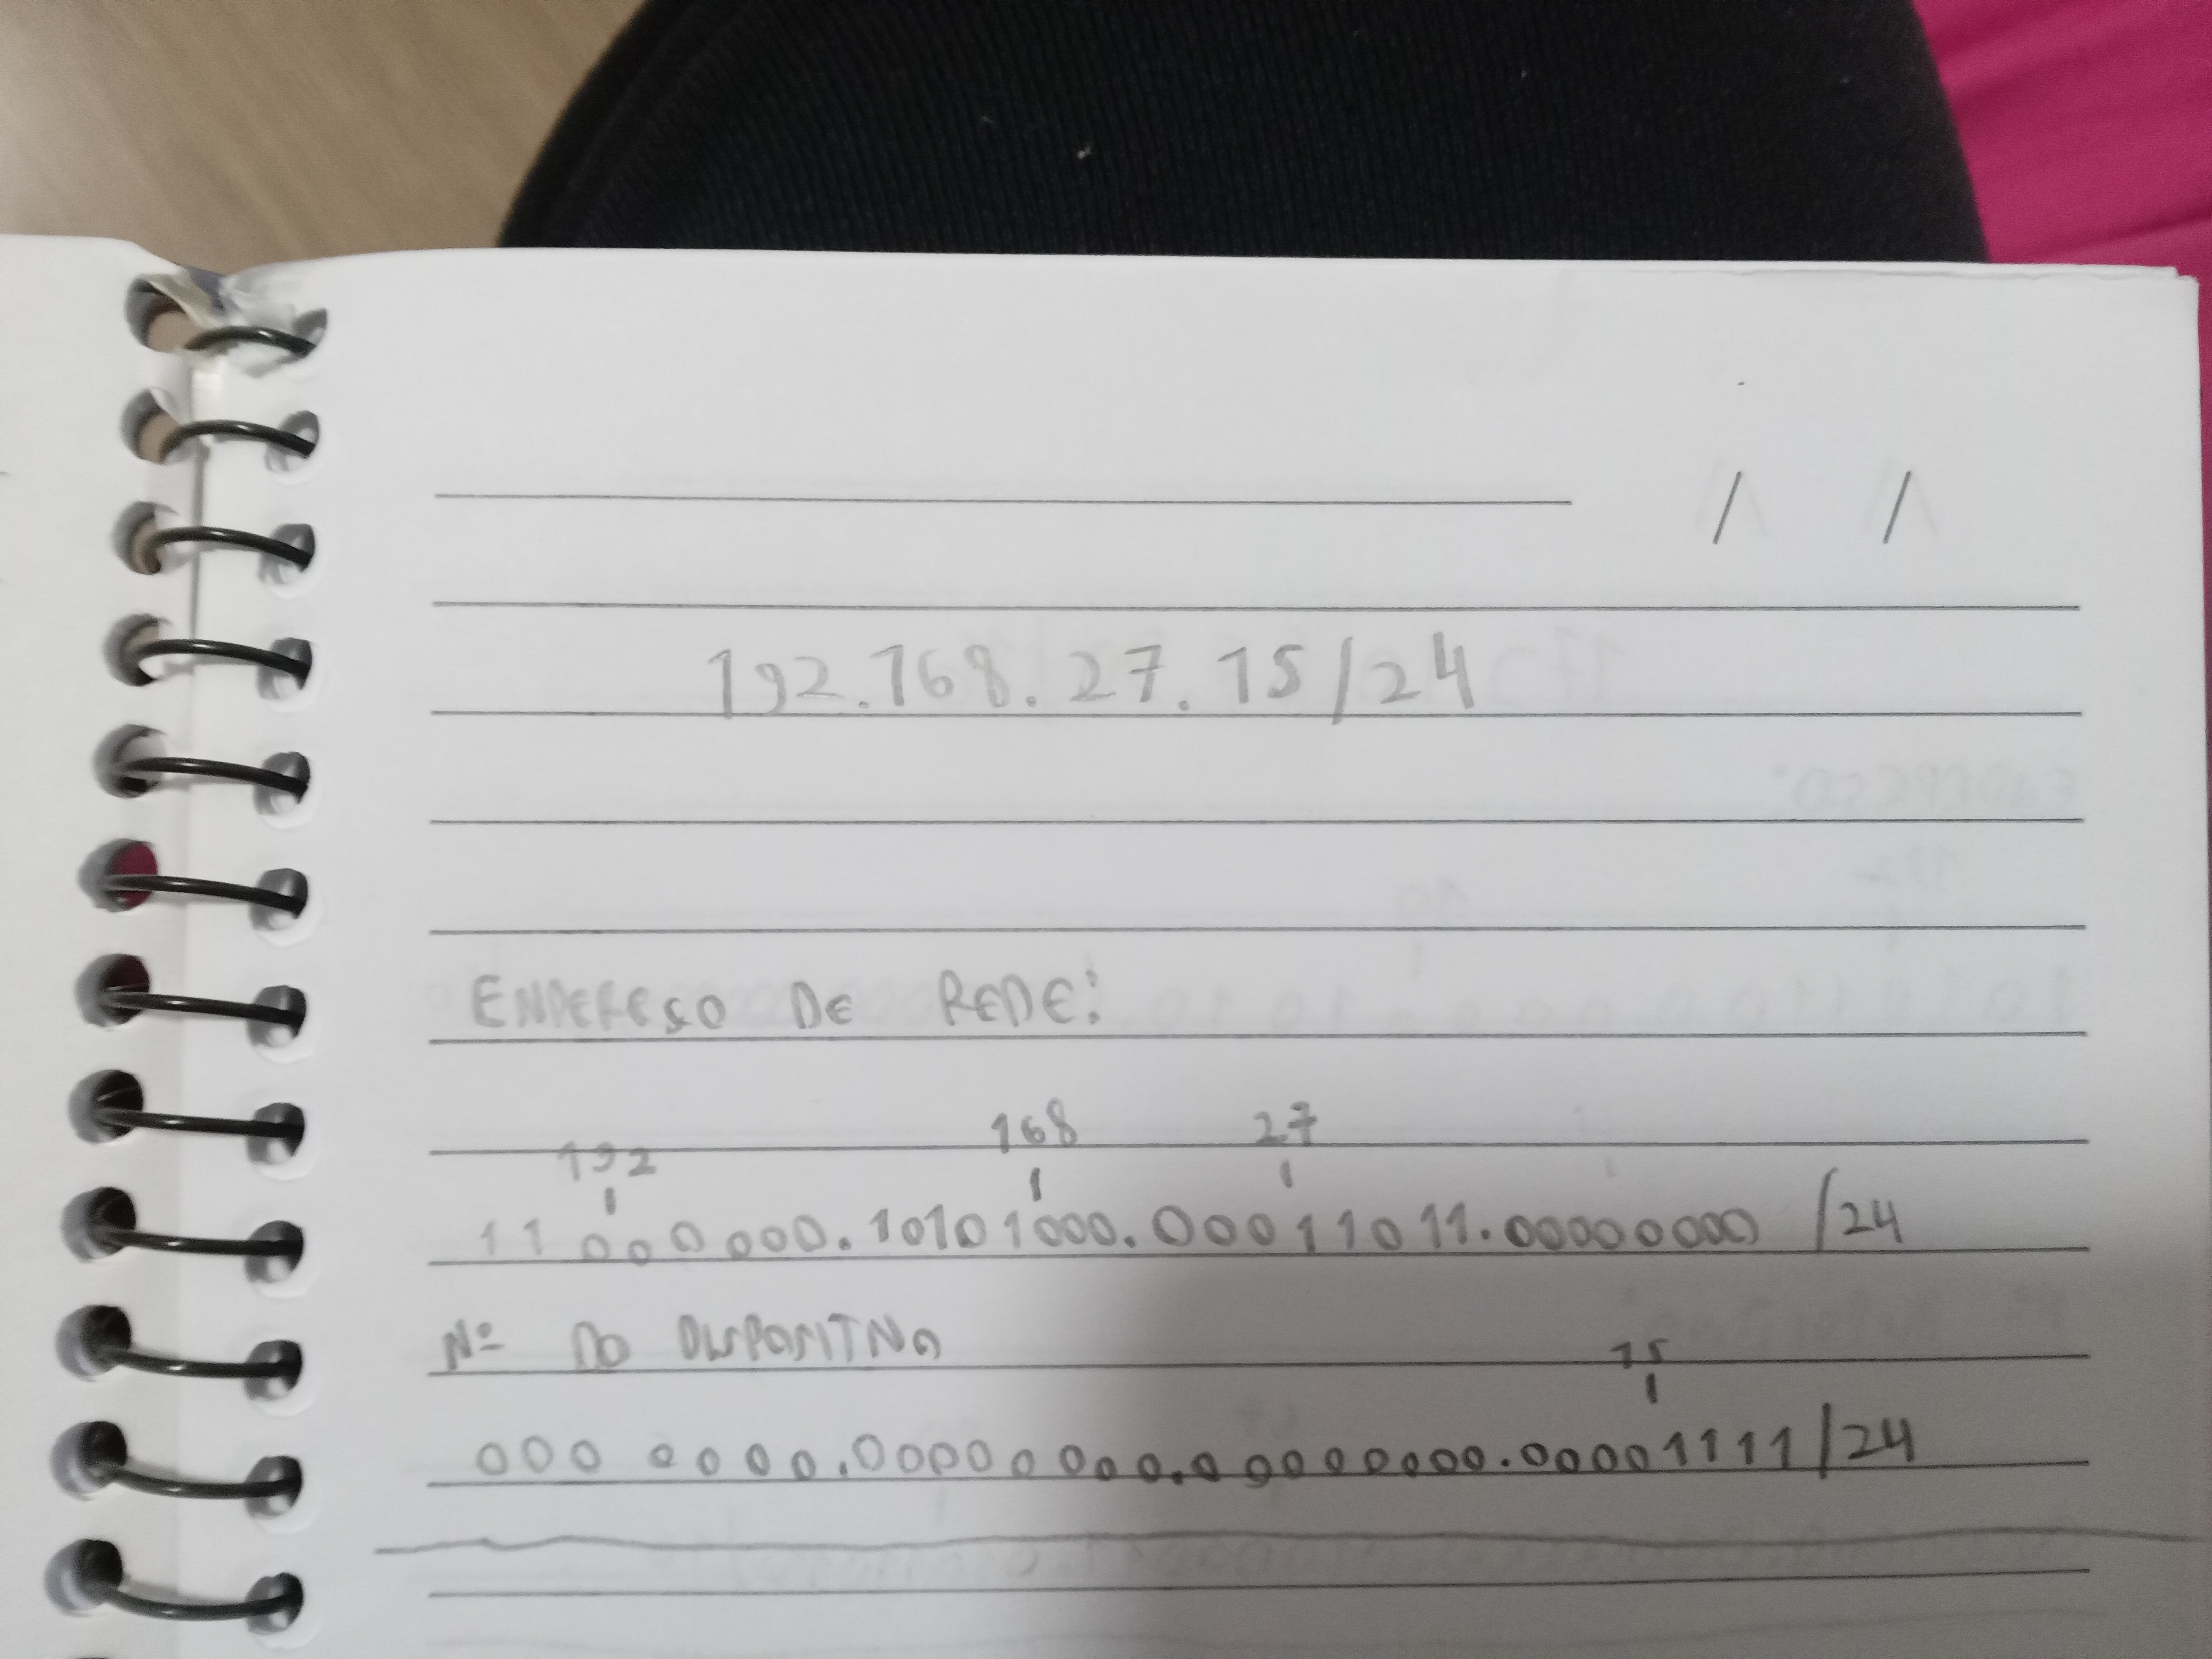 / /
192.168.27.15/24
ENDEREÇO DE REDE:
192 168 27
11000000.10101000.00011011.00000000 /24
Nº DO DISPOSITIVO
15
0000000.00000000.00000000.00001111/24